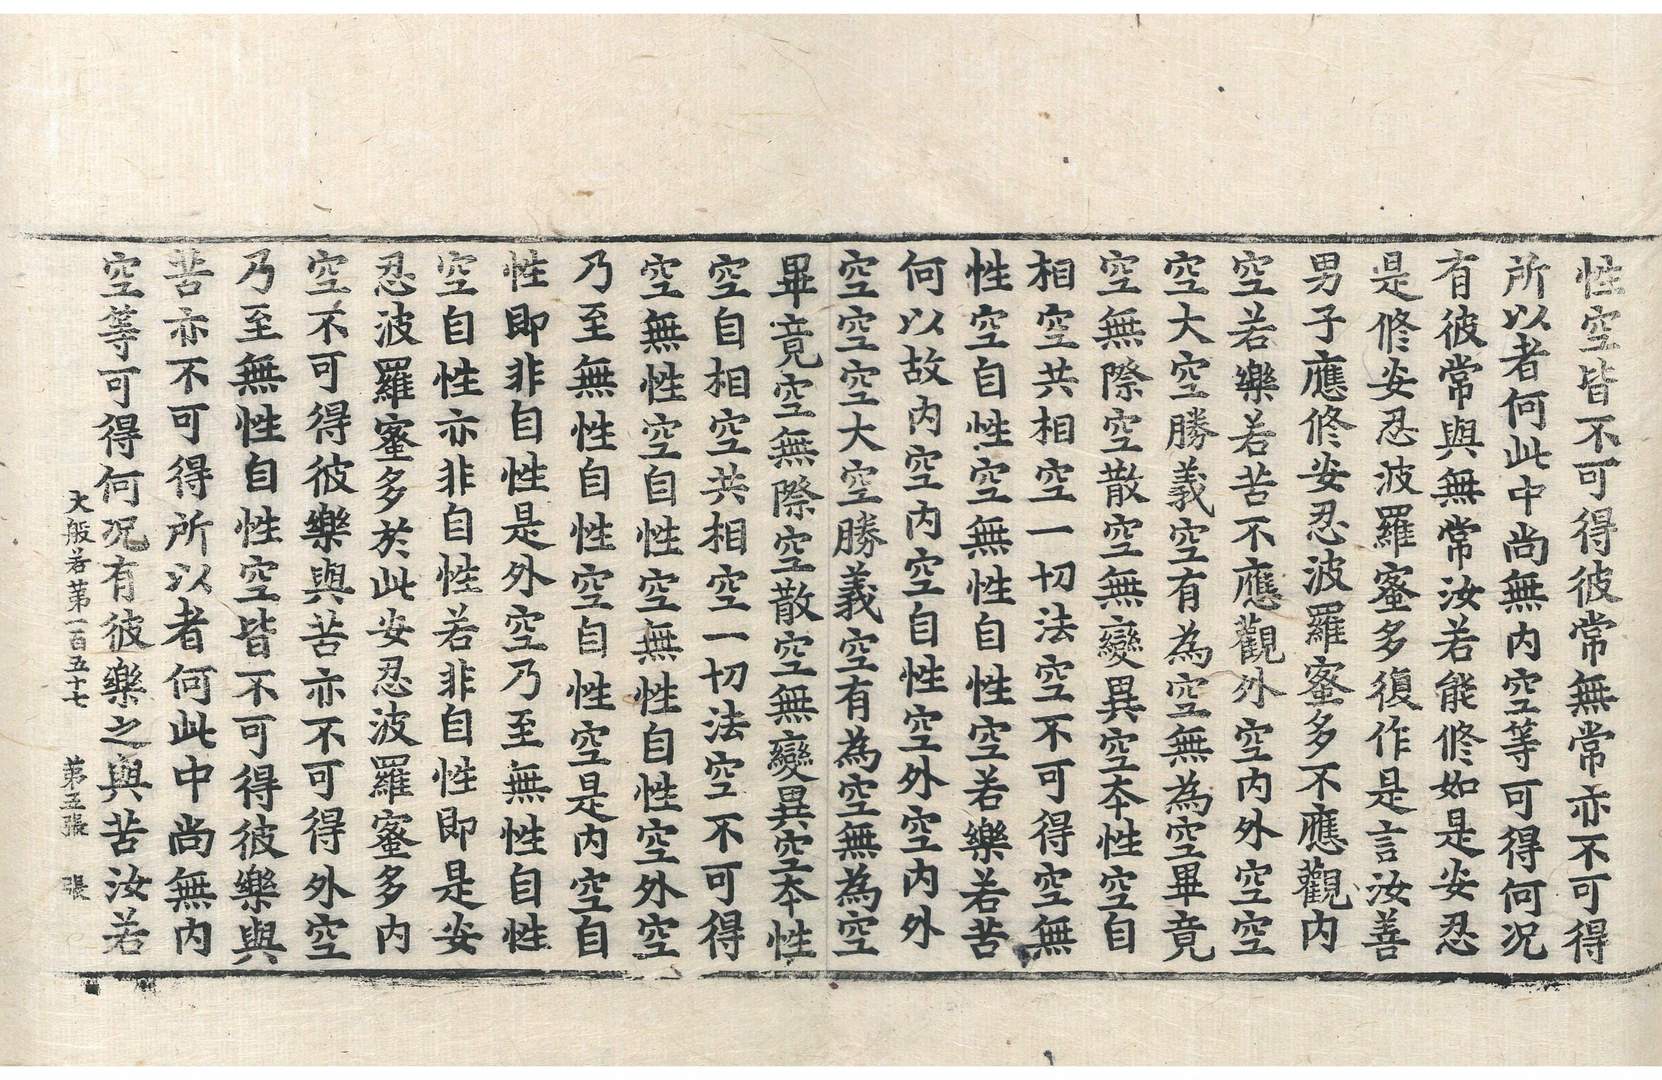 性空皆不可得彼常無常亦不可得
所以者何此中尚無內空等可得何況
有彼常與無常汝若能修如是安忍
是修安忍波羅蜜多復作是言汝善
男子應修安忍波羅蜜多不應觀內
空若樂若苦不應觀外空內外空空
空大空勝義空有為空無為空畢竟
空無際空散空無變異空本性空自
相空共相空一切法空不可得空無
性空自性空無性自性空若樂若苦
何以故內空內空自性空外空內外
空空空大空勝義空有為空無為空
畢竟空無際空散空無變異空本性
空自相空共相空一切法空不可得
空無性空自性空無性自性空外空
乃至無性自性空自性空是內空自
性即非自性是外空乃至無性自性
空自性亦非自性若非自性即是安
忍波羅蜜多於此安忍波羅蜜多內
空不可得彼樂與苦亦不可得外空
乃至無性自性空皆不可得彼樂與
苦亦不可得所以者何此中尚無內
空等可得何況有彼樂之與苦汝若
大般若第一百五十七 第五張 張